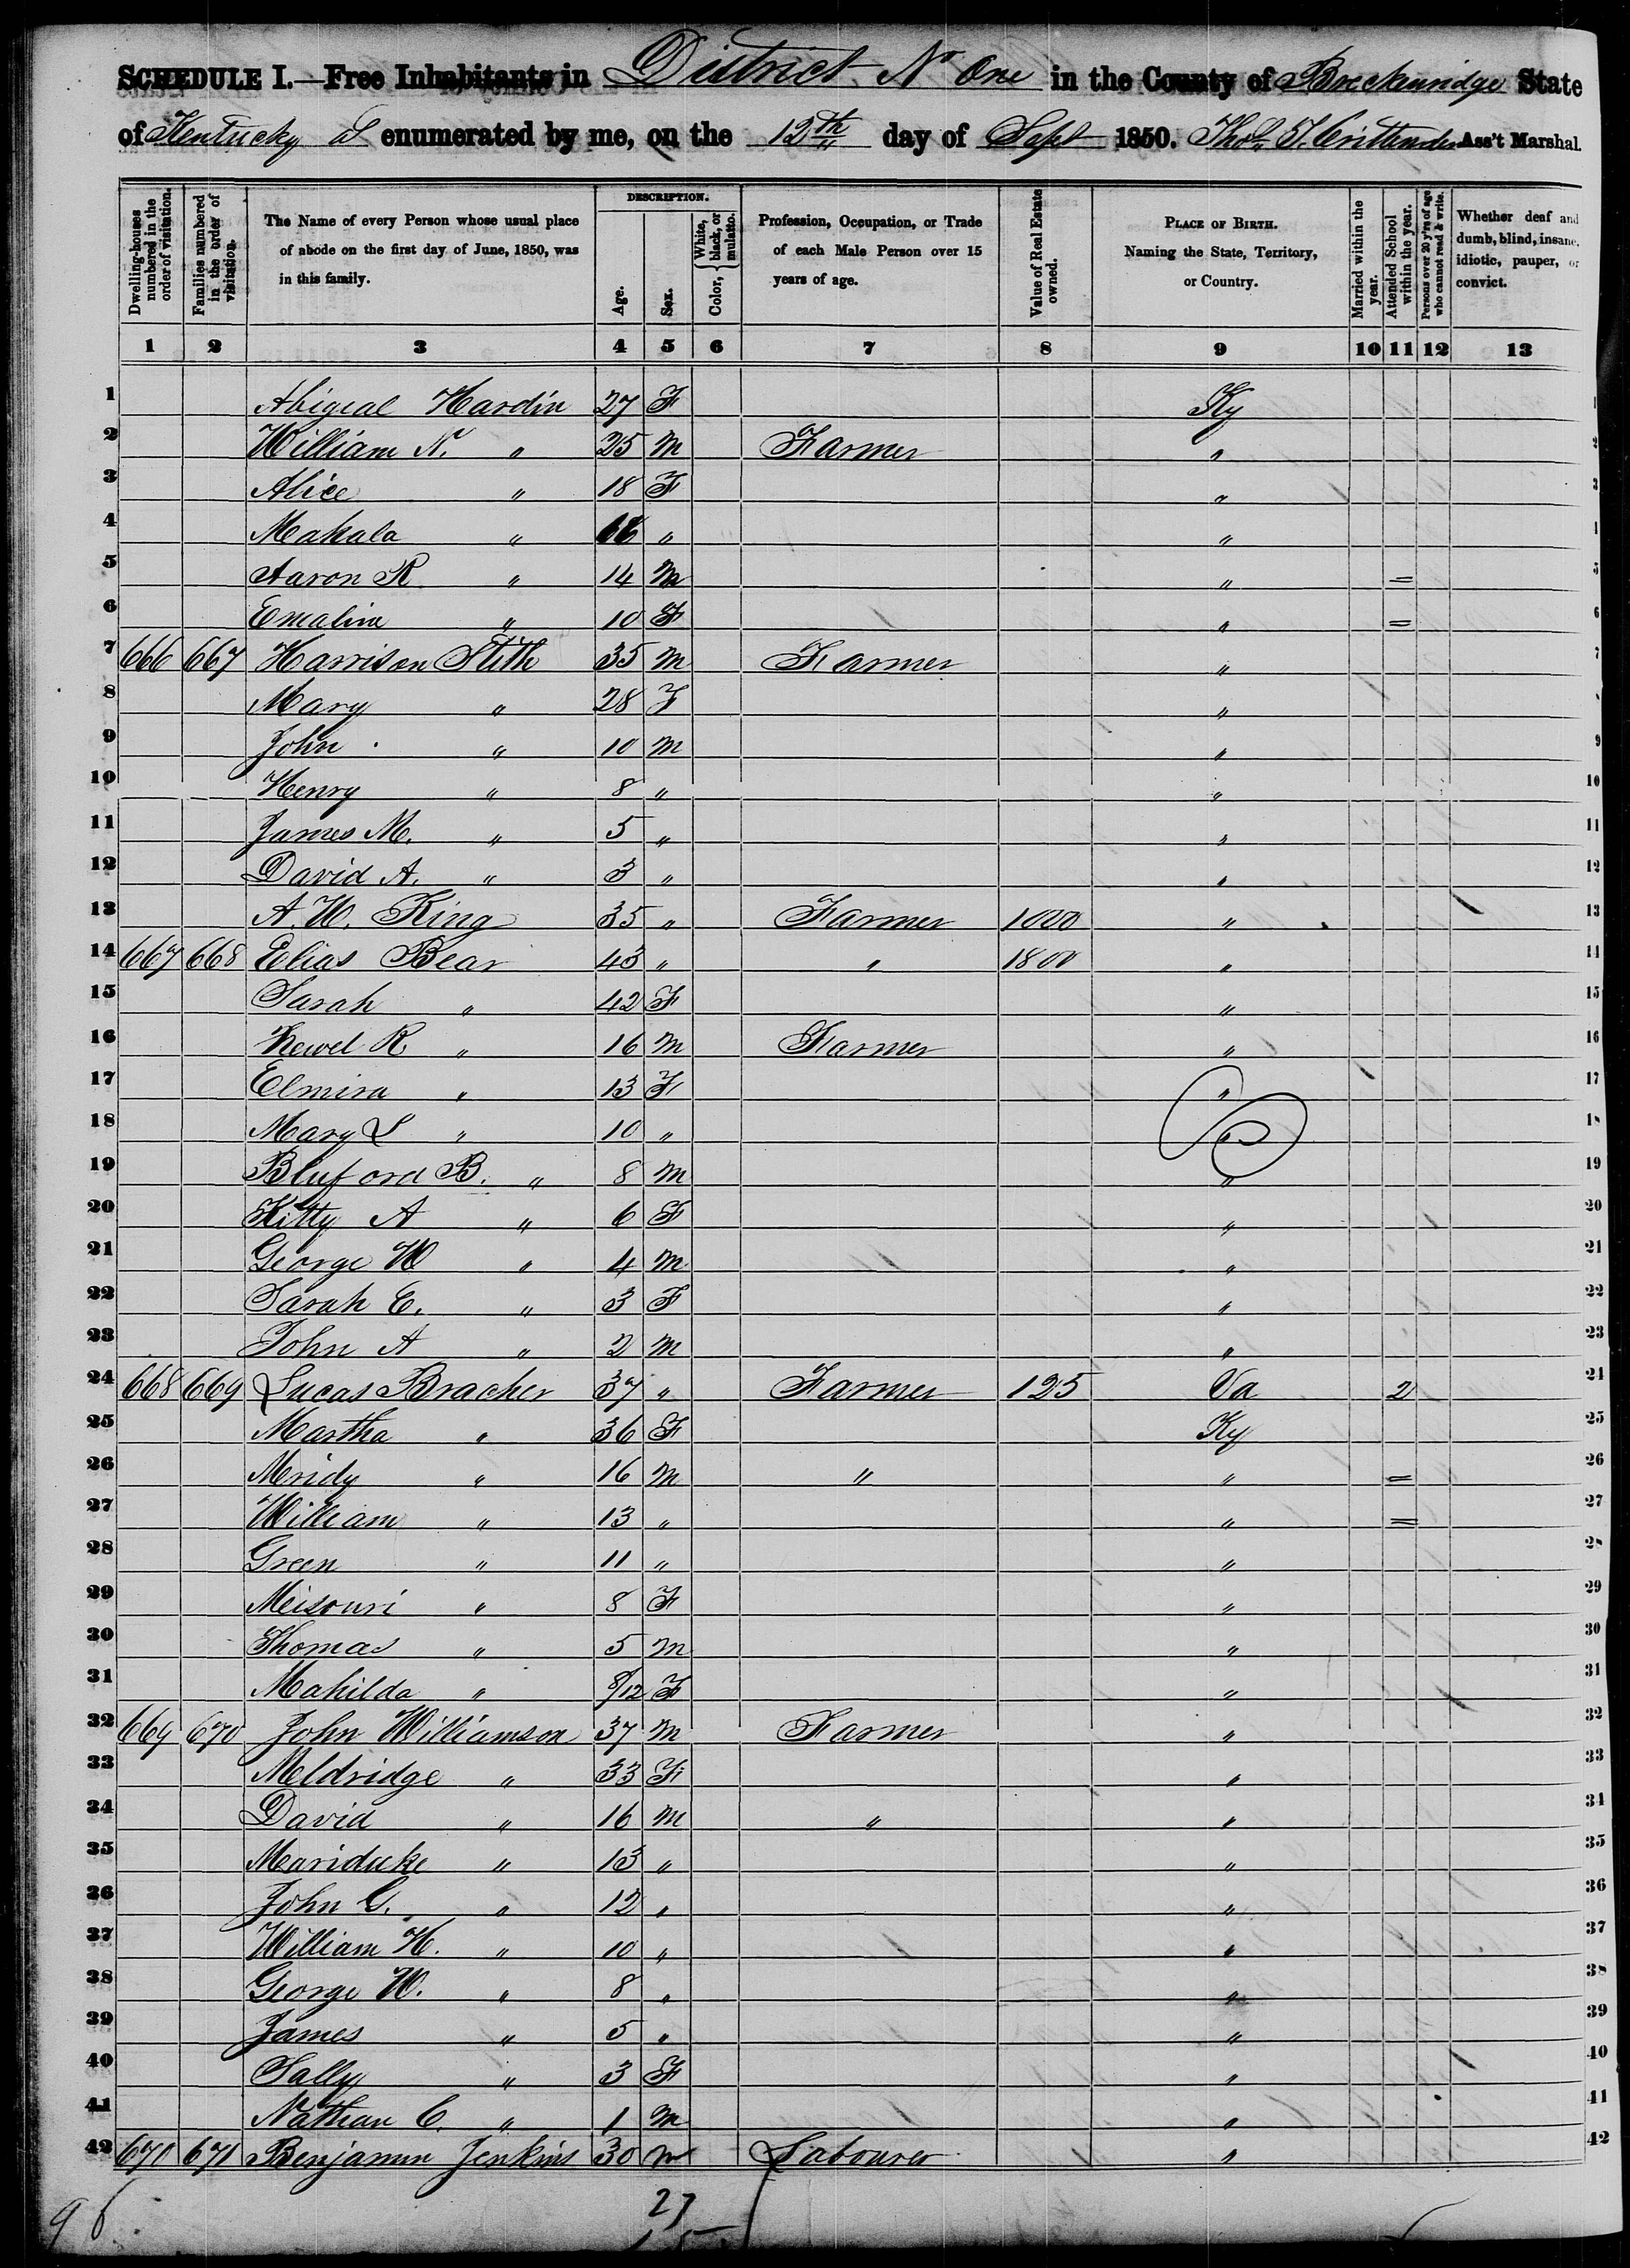 SCHEDULE I.—Free Inhabitants in District No One in the County of Breckenridge State
of Kentucky enumerated by me, on the 12th day of Sept 1850. Thos. T. Crittenden Ass't Marshal.
Dwelling-houses numbered in the order of visitation.
Families numbered in the order of visitation.
The Name of every Person whose usual place of abode on the first day of June, 1850, was in this family.
DESCRIPTION.
Age.
Sex.
Color, { White, black, or mulatto.
Profession, Occupation, or Trade of each Male Person over 15 years of age.
Value of Real Estate owned.
PLACE OF BIRTH. Naming the State, Territory, or Country.
Married within the year.
Attended School within the year.
Persons over 20 y'rs of age who cannot read & write.
Whether deaf and dumb, blind, insane, idiotic, pauper, or convict.
1 2 3 4 5 6 7 8 9 10 11 12 13
1 Abigeal Hardin 27 F Ky
2 William N. " 25 M Farmer " 2
3 Alice " 18 F " 3
4 Mahala " 16 " "
5 Aaron R " 14 M " = 5
6 Emaline " 10 F " = 6
7 666 667 Harrison Stith 35 M Farmer " 7
8 Mary " 28 F "
9 John " 10 M " 9
10 Henry " 8 " " 10
11 James M. " 5 " " 11
12 David A. " 3 " " 12
13 A. W. King 35 " Farmer 1000 " 13
14 667 668 Elias Bear 43 " " 1800 " 14
15 Sarah " 42 F " 15
16 Newel R " 16 M Farmer " 16
17 Elmira " 13 F " 17
18 Mary L " 10 " " 18
19 Bluford B. " 8 M " 19
20 Kitty A " 6 F " 20
21 George W " 4 M " 21
22 Sarah E. " 3 F " 22
23 John A " 2 M " 23
24 668 669 Lucas Bracher 37 " Farmer 125 Va 2 24
25 Martha " 36 F Ky 25
26 Mridy " 16 M " " = 26
27 William " 13 " " = 27
28 Green " 11 " " 28
29 Meisouri " 8 F " 29
30 Thomas " 5 M " 30
31 Mahilda " 8/12 F " 31
32 669 670 John Williamson 37 M Farmer " 32
33 Meldridge " 33 F " 33
34 David " 16 M " " 34
35 Mariduke " 13 " " 35
36 John G. " 12 " " 36
37 William H. " 10 " " 37
38 George W. " 8 " " 38
39 James " 5 " " 39
40 Sally " 3 F " 40
41 Nathan C. " 1 M " 41
42 670 671 Benjamin Jenkins 30 M Labourer " 42
96
27